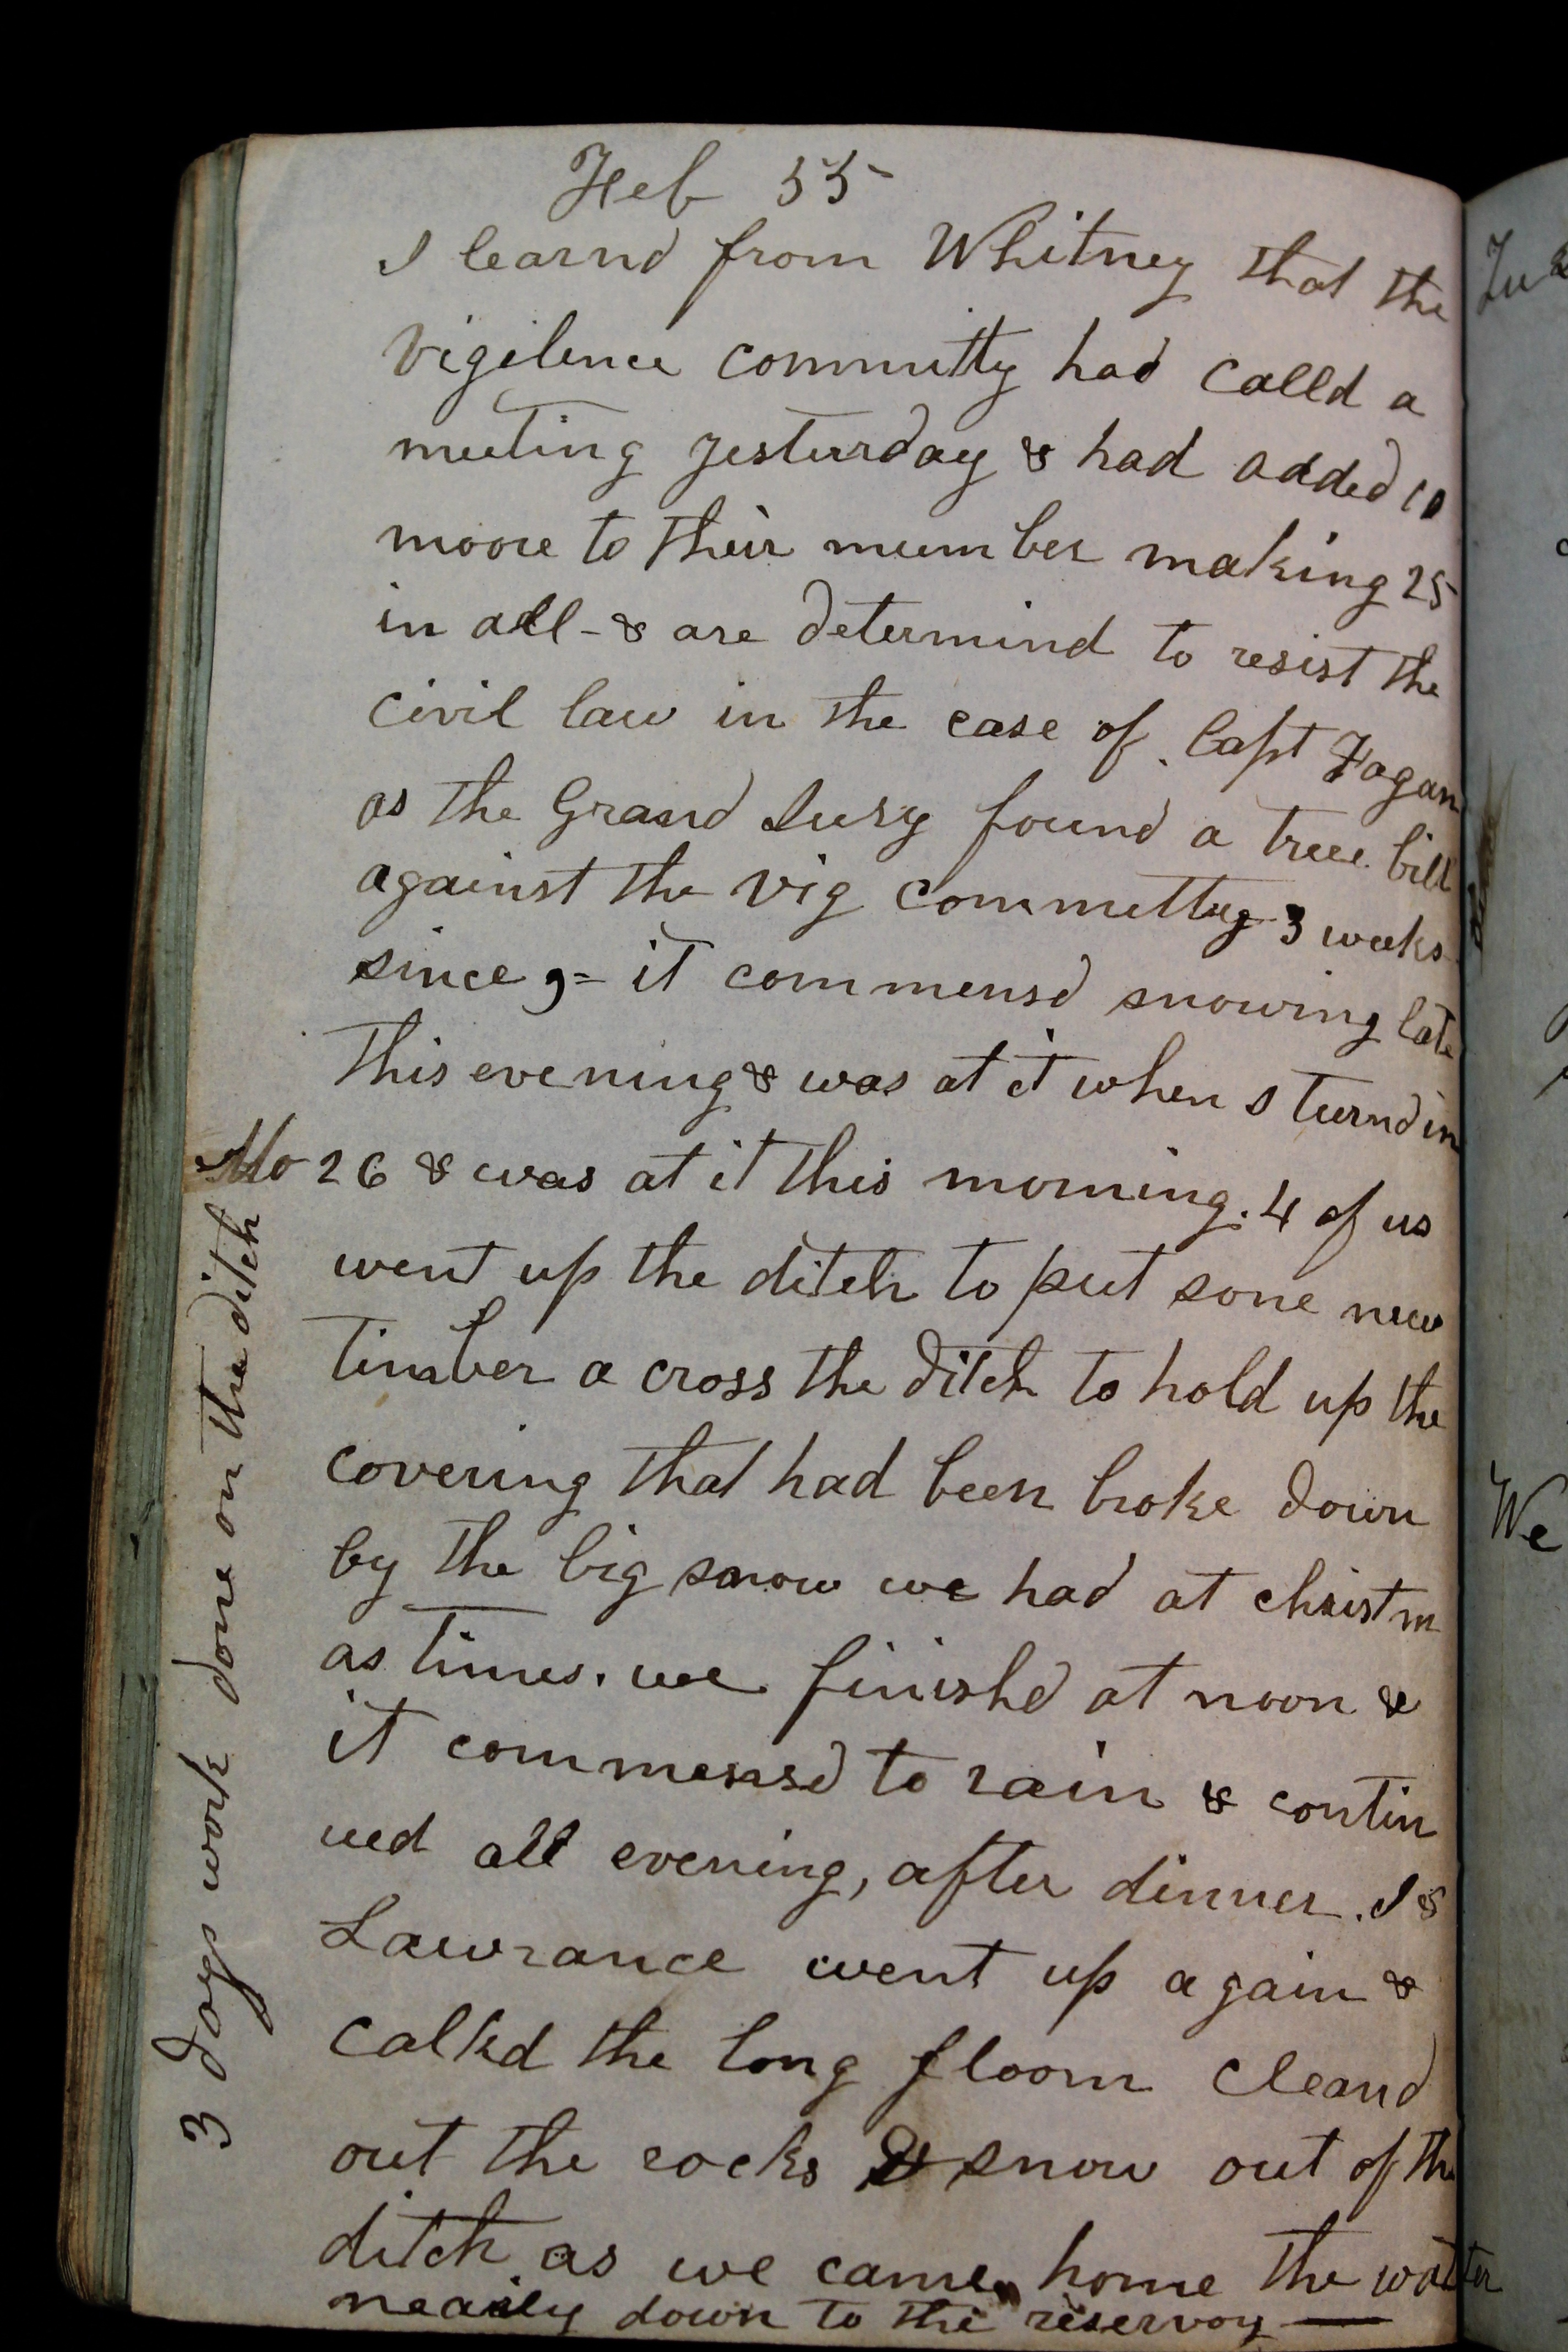 Feb 55
I learnd from Whitney that the
vigilence committy had calld a
meeting yesturday & had added 10
moore to their mumber making 25
in all - & are determind to resist the
civil law in the case of. Capt Fagan
as the Grand Jury found a true bill
against the vig committuy 3 weeks
since, = it commensd snowing late
this evening & was at it when I turnd in
Mo 26 & was at it this morning. 4 of us
went up the ditch to put some new
timber a cross the ditch to hold up the
covering that had been broke down
by the big snow we had at christm
as times. we finishd at noon &
it commensd to rain & contin
ued all evening, after dinner. I &
Lawrance went up again &
calkd the long floom cleand
out the rocks & snow out of the
ditch as we came home the watter
nearly down to the reservoy —
3 days work done on the ditch
We